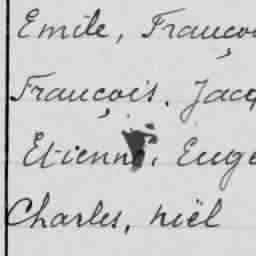 Emile, Françoi
François. Jacq
Etienne, Euge
Charles, niël